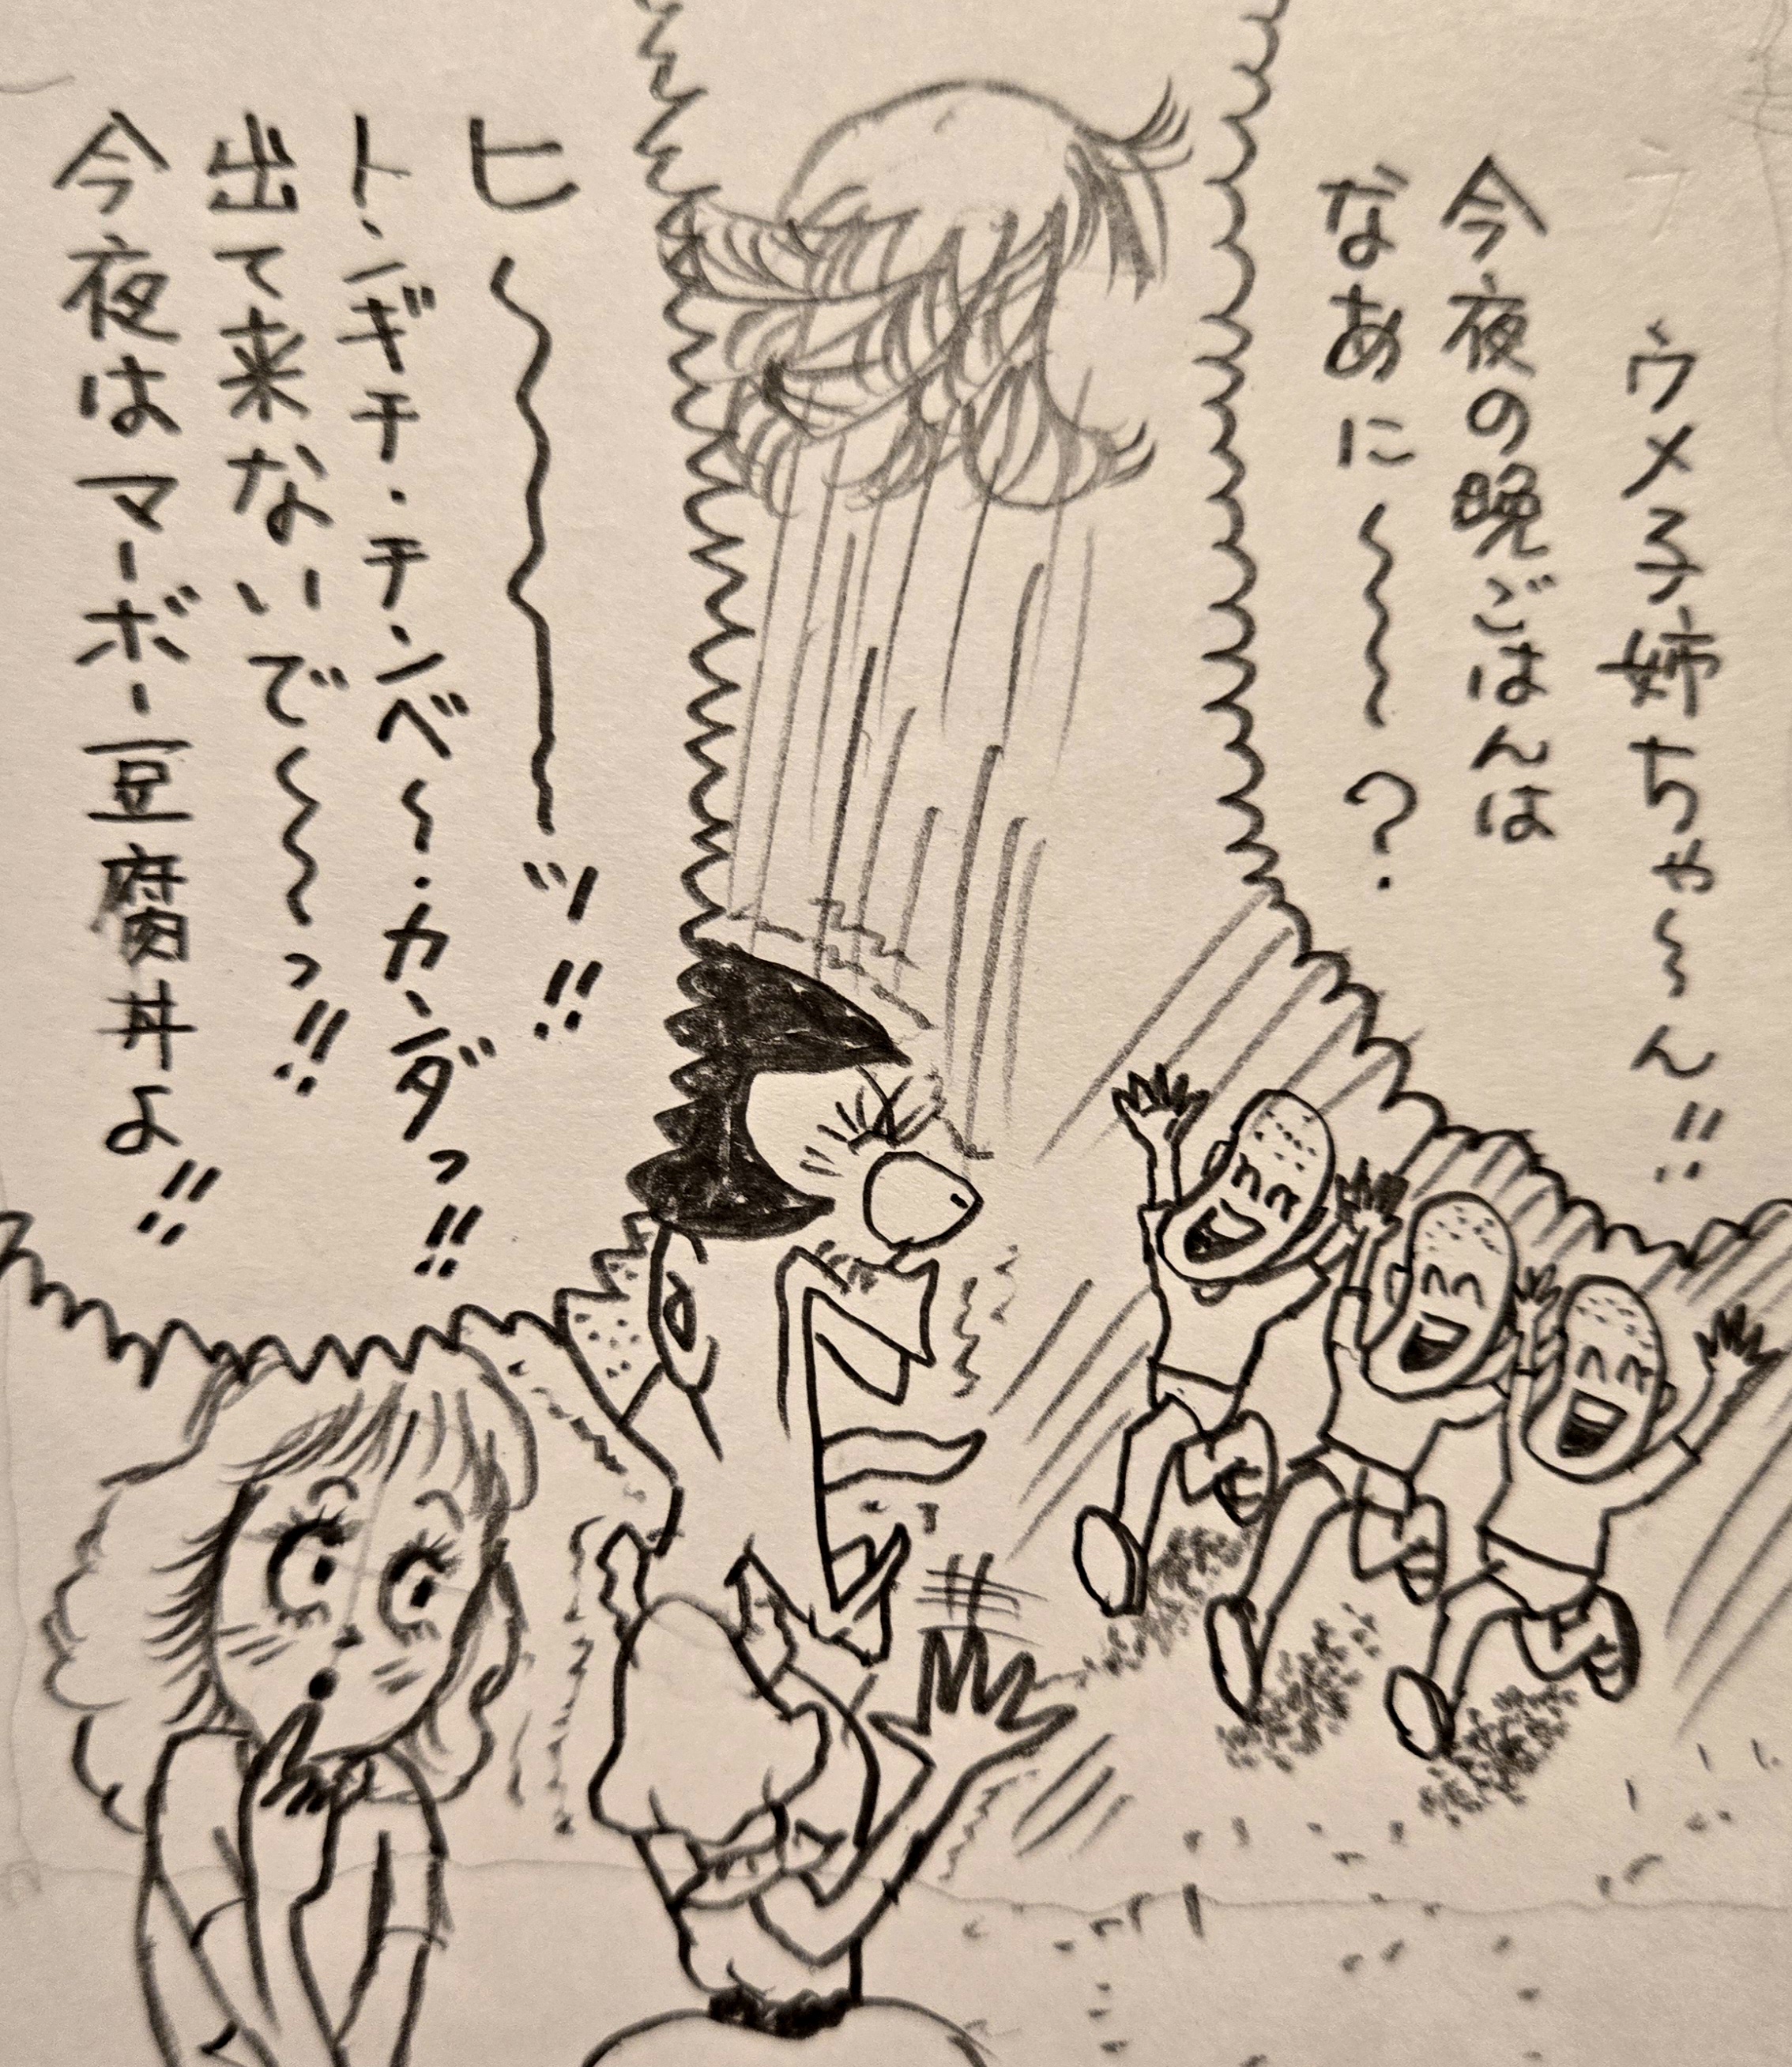 ウメ子姉ちゃ〜ん!!
今夜の晩ごはんは
なあに〜〜〜?
ヒ〜〜〜〜ッ!!
トンギチ・チンベ〜・カンダっ!!
出て来ないで〜〜〜っ!!
今夜はマーボー豆腐丼よ!!